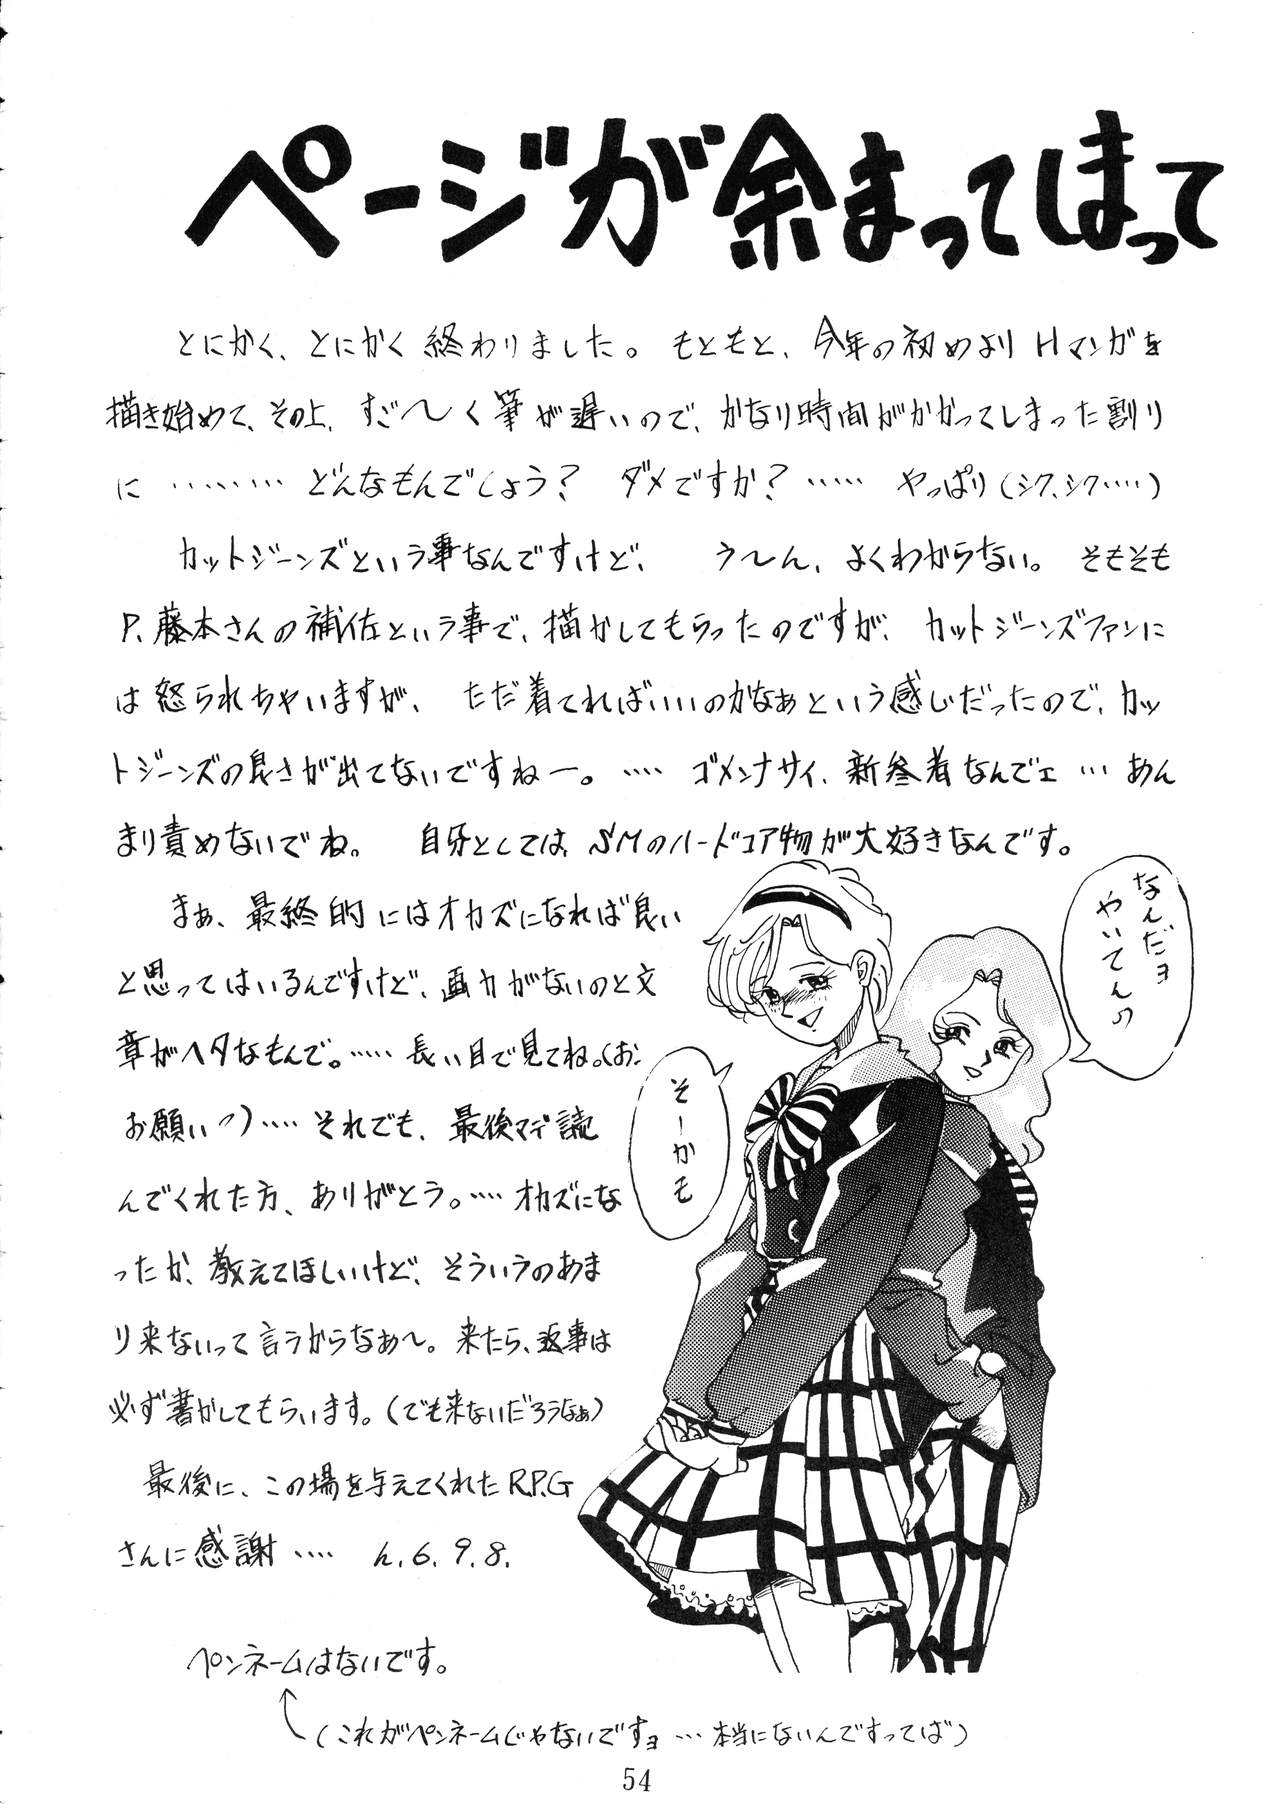 ページが余まってしまって
とにかく、とにかく終わりました。もともと、今年の初めよりHマンガを
描き始めて、その上、すご～く筆が遅いので、かなり時間がかかってしまった割り
に………どんなもんでしょう？ダメですか？……やっぱり（シク、シク……）
カットジーンズという事なんですけど、う～ん、よくわからない。そもそも
P、藤本さんの補佐という事で、描かしてもらったのですが、カットジーンズファンに
は怒られちゃいますが、ただ着てればいいのかなぁという感じだったので、カッ
トジーンズの良さが出てないですねー。……ゴメンナサイ、新参者なんでェ…あん
まり責めないでね。自分としては、SMのハードコア物が大好きなんです。
まぁ、最終的にはオカズになれば良い
と思ってはいるんですけど、画力がないのと文
章がヘタなもんで。……長い目で見てね。（お
お願いっ）……それでも、最後マデ読
んでくれた方、ありがとう。……オカズにな
ったか、教えてほしいけど、そういうのあま
り来ないって言うからなぁ～。来たら、返事は
必ず書かしてもらいます。（でも来ないだろうなぁ）
最後に、この場を与えてくれたR.P.G
さんに感謝……ん.6.9.8.
なんだョ
やいてんの
そーかも
ペンネームはないです。
（これがペンネームじゃないですョ…本当にないんですってば）
54